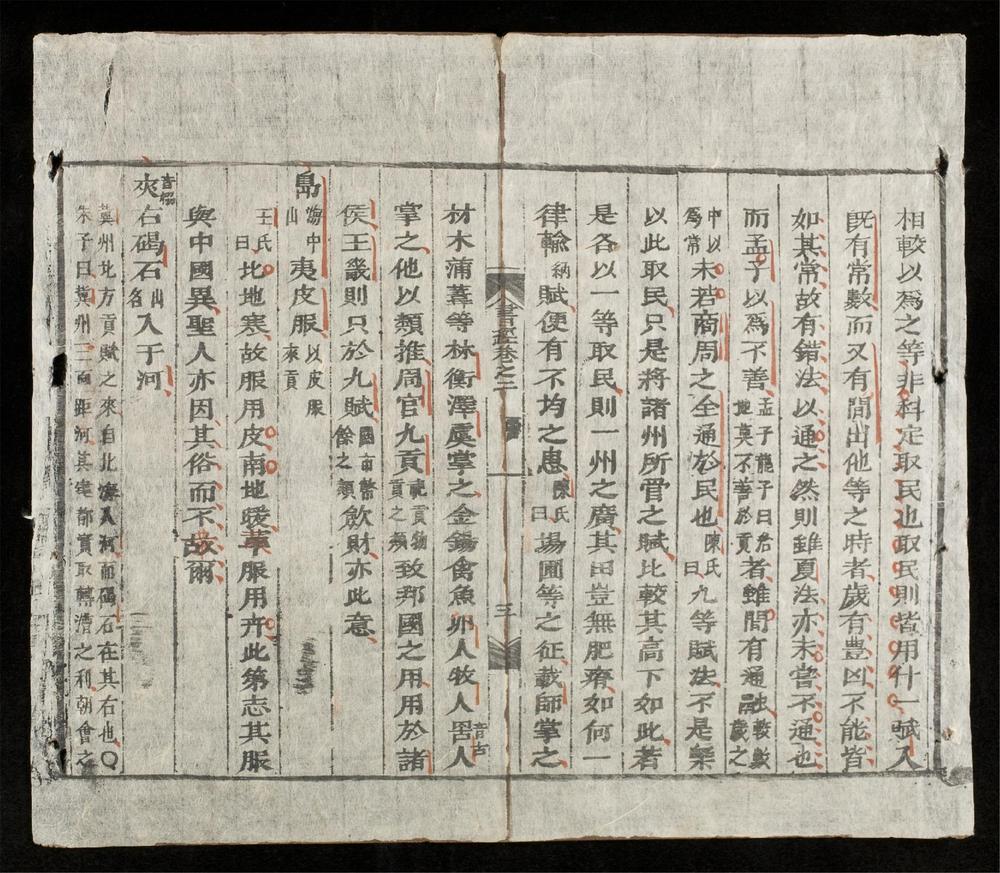 相較以爲之等非科定取民也取民則皆用什一賦入
旣有常數而又有間出他等之時者歲有豊凶不能皆
如其常故有錯法以通之然則雖夏法亦未嘗不通也
而孟子以爲不善孟子龍子曰治地莫不善於貢者雖間有通融較數歲之
中以爲常未若商周之全通於民也陳氏曰九等賦法不是槩
以此取民只是將諸州所管之賦比較其高下如此若
是各以一等取民則一州之廣其田豈無肥瘠如何一
律輸納賦便有不均之患陳氏曰場圃等之征載師掌之
書經卷之二 三
材木蒲葦等林衡澤虞掌之金錫禽魚卵人牧人罟音古人
掌之他以類推周官九貢祀貢物貢之類致邦國之用用於諸
侯王畿則只於九賦國市幣餘之類歛財亦此意
島海中山夷皮服以皮服來貢
王氏曰北地寒故服用皮南地暖葉服用卉此第志其服
與中國異聖人亦因其俗而不故爾
夾音協右碣石山名入于河
冀州北方貢賦之來自北海入河而碣石在其右也○
朱子曰冀州三面距河其建都實取轉漕之利朝會之